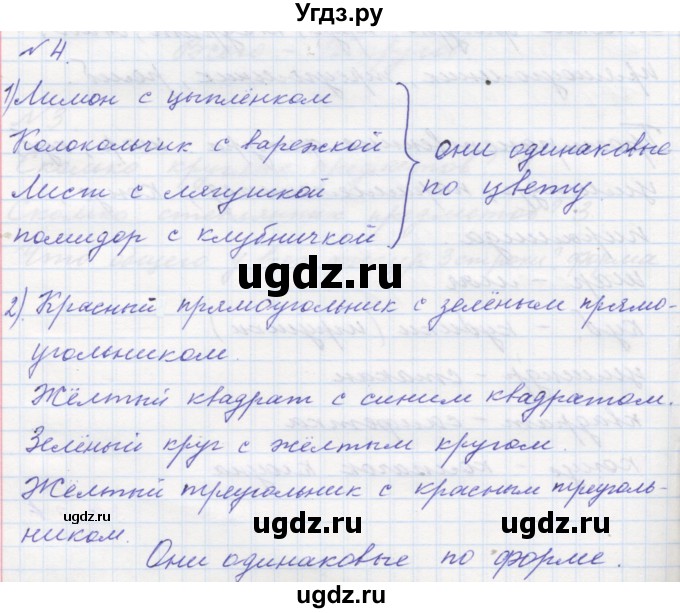 Угдз.ру
№ 4.
1) Лимон с цыплёнком
Колокольчик с варежкой
Лист с лягушкой
помидор с клубничкой
они одинаковые
по цвету.
ugdz.ru
ugdz.ru
2) Красный прямоугольник с зелёным прямо-
угольником.
Жёлтый квадрат с синим квадратом.
Зелёный круг с жёлтым кругом.
Жёлтый треугольник с красным треуголь-
ником.
Они одинаковые по форме.
ugdz.ru
ugdz.ru
ugdz.ru
ugdz.ru